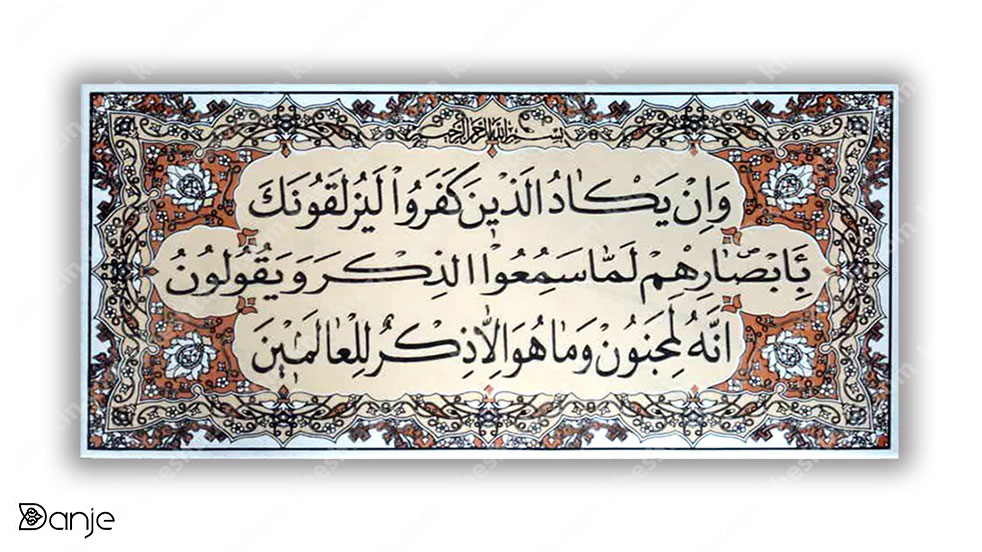 بسم الله الرحمن الرحیم
وَاِنْ یَکٰادُ الَّذینَ کَفَرُواْ لَیُزلِقُونَکَ
بِاَبْصٰارِهِمْ لَمّٰا سَمِعُوا الذِکْرَ وَ یَقُولُونُ
اِنَّهُ لَمَجنَونُ وَ مٰا هُوَ اِلّاٰ ذِکْرٌ لِلْعٰالَمٰینَ
Danje